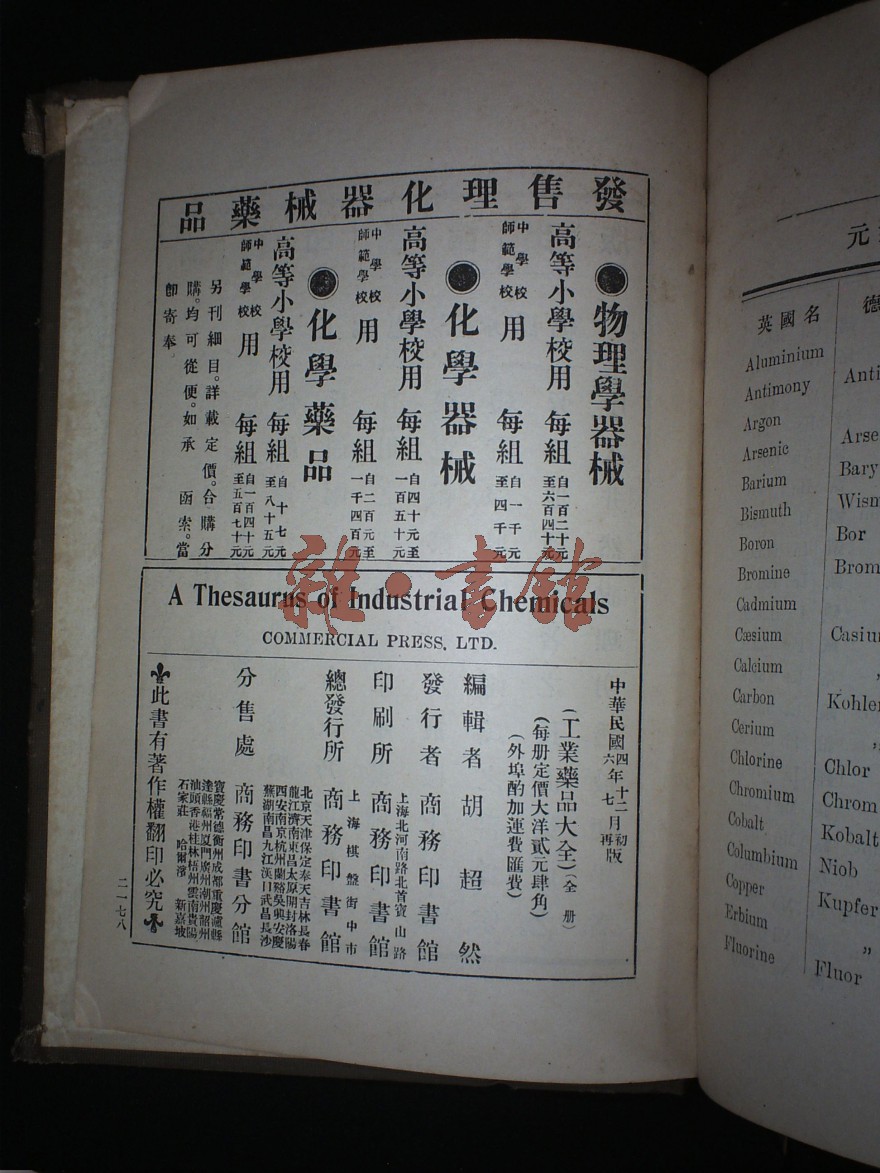 發售理化器械藥品
物理學器械
高等小學校用 每組 自一百二十元至六百四十元
中學校師範學校 用 每組 自一千元至四千元
化學器械
高等小學校用 每組 自四十元至一百五十元
中學校師範學校 用 每組 自二百元至一千四百元
化學藥品
高等小學校用 每組 自十七元至八十五元
中學校師範學校 用 每組 自一百四十元至五百七十元
另刊細目。詳載定價。合購分
購。均可從便。如承 函索。當
卽寄奉
雜·書館
A Thesaurus of Industrial Chemicals
COMMERCIAL PRESS, LTD.
中華民國四年十二月初版
六年七月再版
(工業藥品大全)(全册)
(每册定價大洋貳元肆角)
(外埠酌加運費匯費)
編輯者 胡超然
發行者 商務印書館
上海北河南路北首寶山路
印刷所 商務印書館
上海棋盤街中市
總發行所 商務印書館
北京天津保定奉天吉林長春
龍江濟南東昌太原開封洛陽
西安南京杭州蘭谿吳興安慶
蕪湖南昌九江漢口武昌長沙
分售處 商務印書分館
寶慶常德衡州成都重慶瀘縣
達縣福州厦門廣州潮州韶州
汕頭香港桂林梧州雲南貴陽
石家莊 哈爾濱 新嘉坡
此書有著作權翻印必究
二一七八
元
英國名
德
Aluminium
Antimony Anti
Argon
Arsenic Arse
Barium Bary
Bismuth Wism
Boron Bor
Bromine Brom
Cadmium
Cæsium Casiu
Calcium „
Carbon Kohlen
Cerium
Chlorine Chlor
Chromium Chrom
Cobalt Kobalt
Columbium Niob
Copper Kupfer
Erbium „
Fluorine Fluor